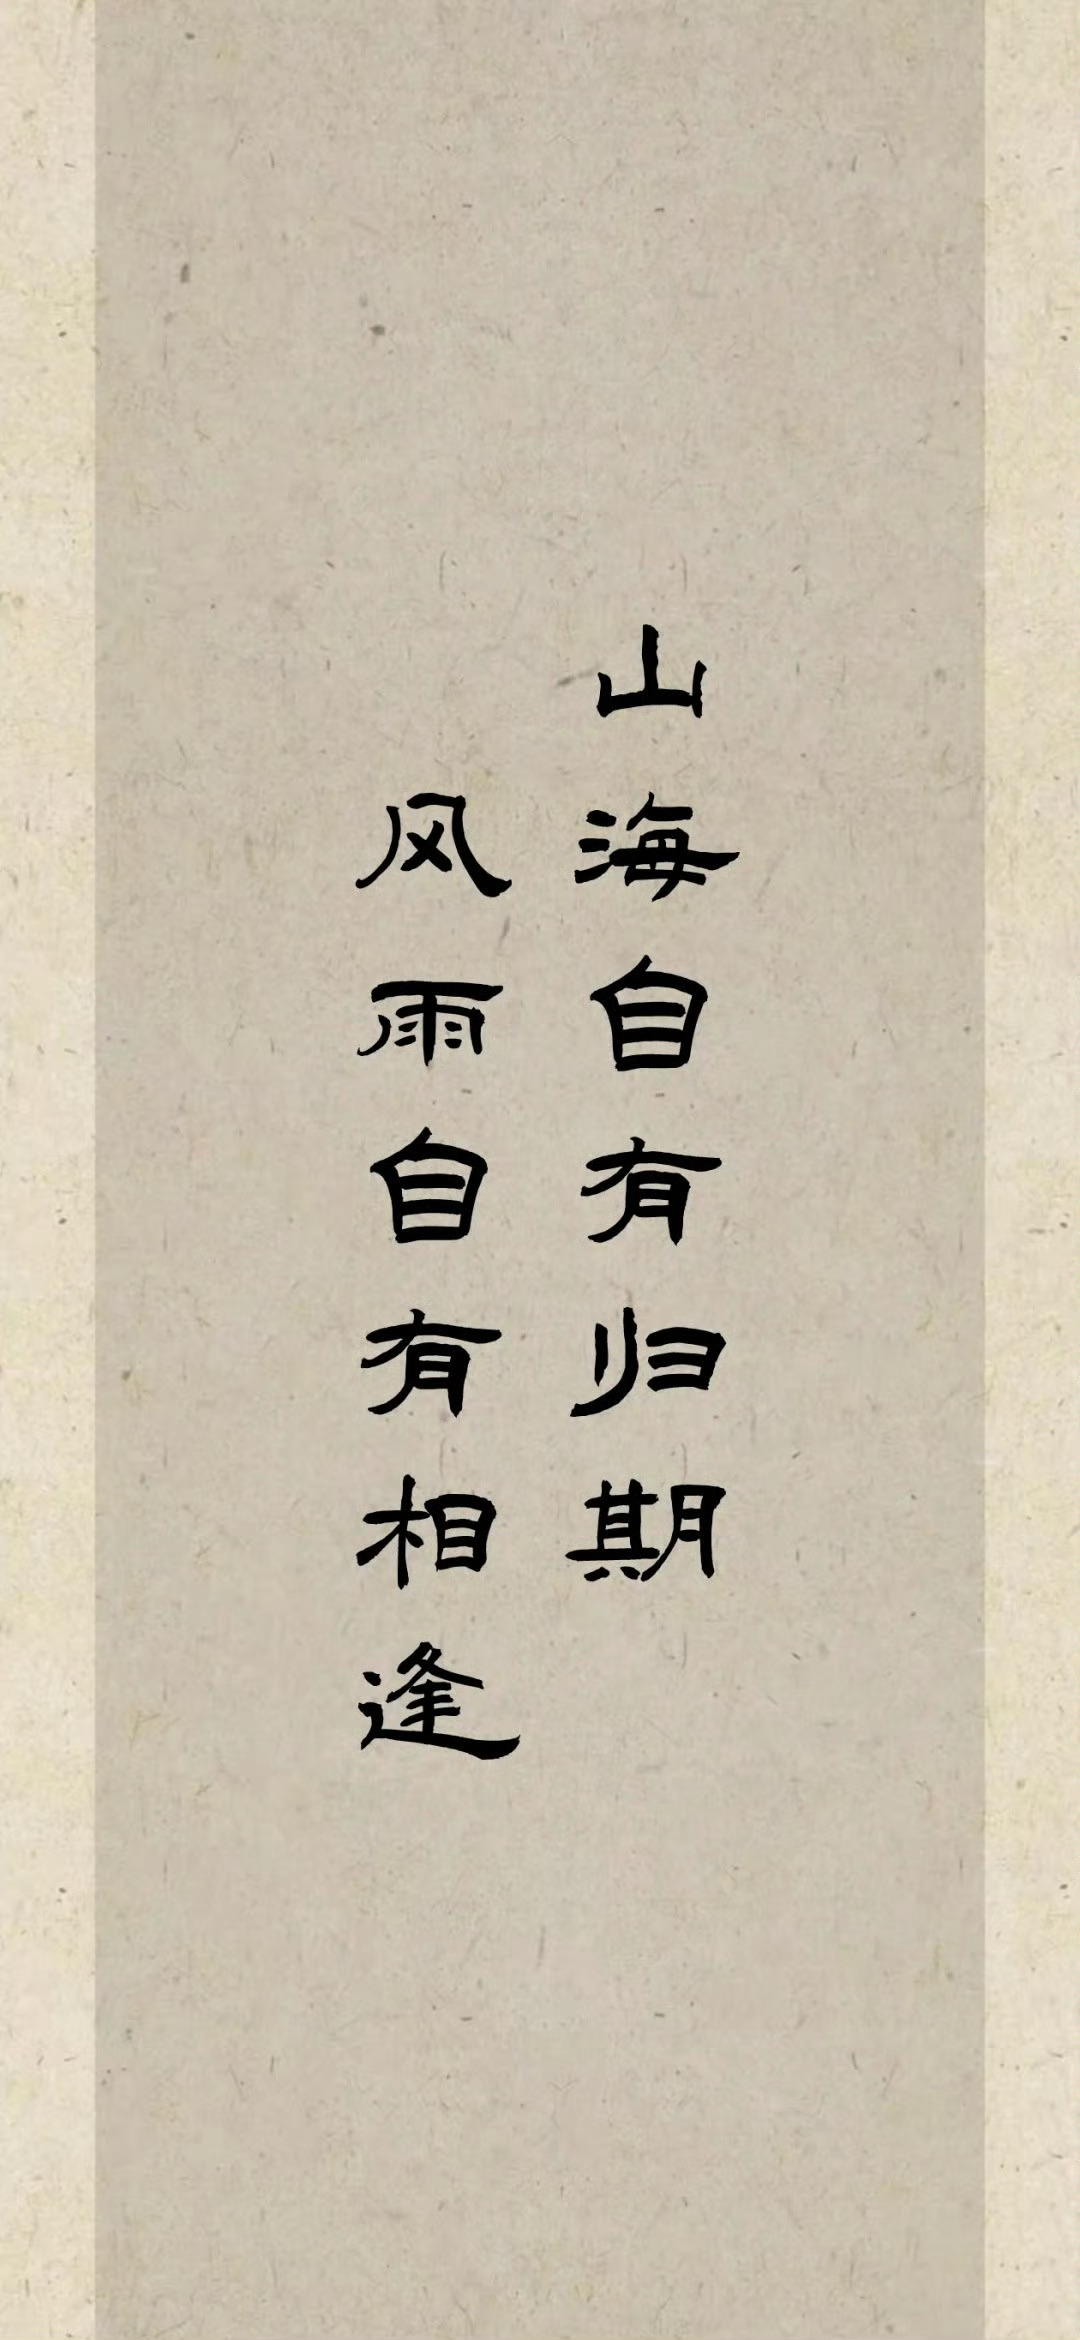 山海自有归期
风雨自有相逢